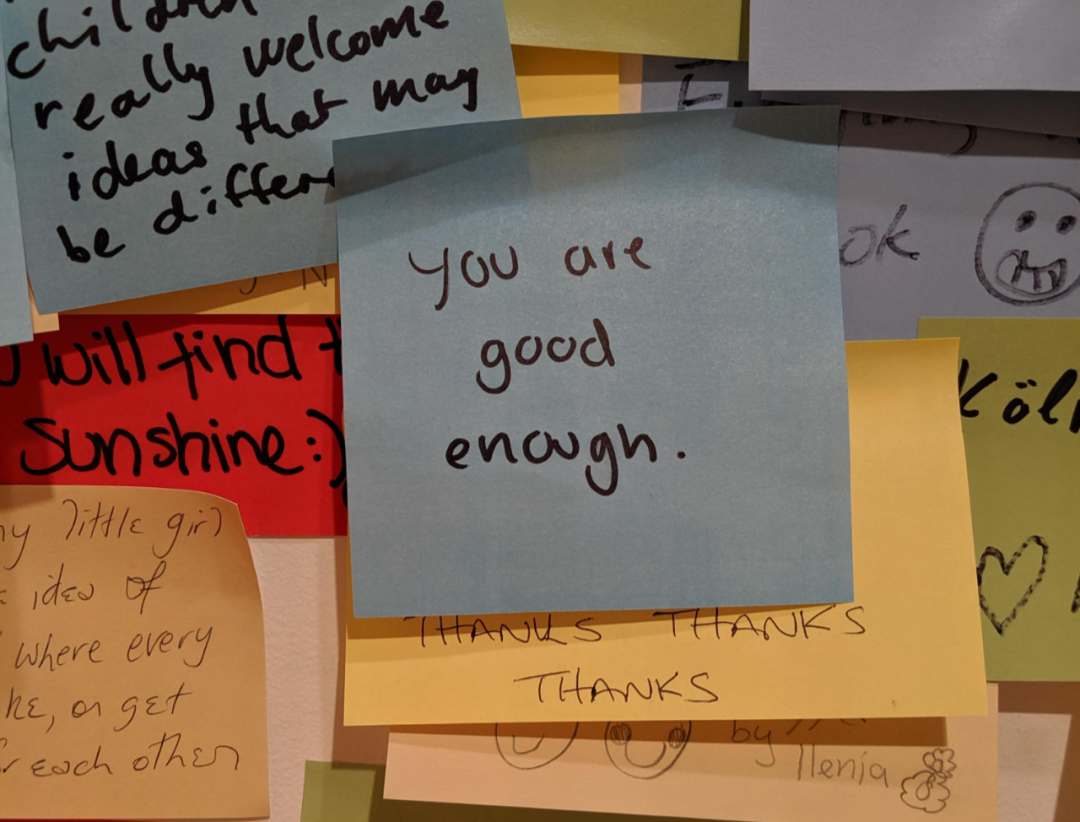 really welcome
ideas that may
be
you are
good
enough.
ok
will find
sunshine:)
Köln
little girl
idea of
where every
or get
each other
THANKS THANKS
THANKS
by
Ilenia